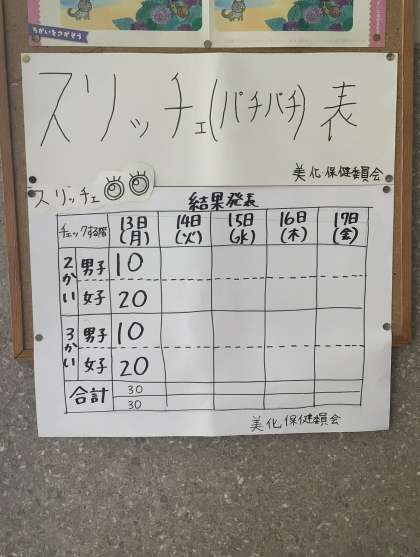 ちがいをさがそう
スリッチェ(パチパチ)表
美化・保健委員会
スリッチェ
結果発表
チェックする階 13日(月) 14日(火) 15日(水) 16日(木) 17日(金)
2かい 男子 10
女子 20
3かい 男子 10
女子 20
合計 30
30
美化保健委員会